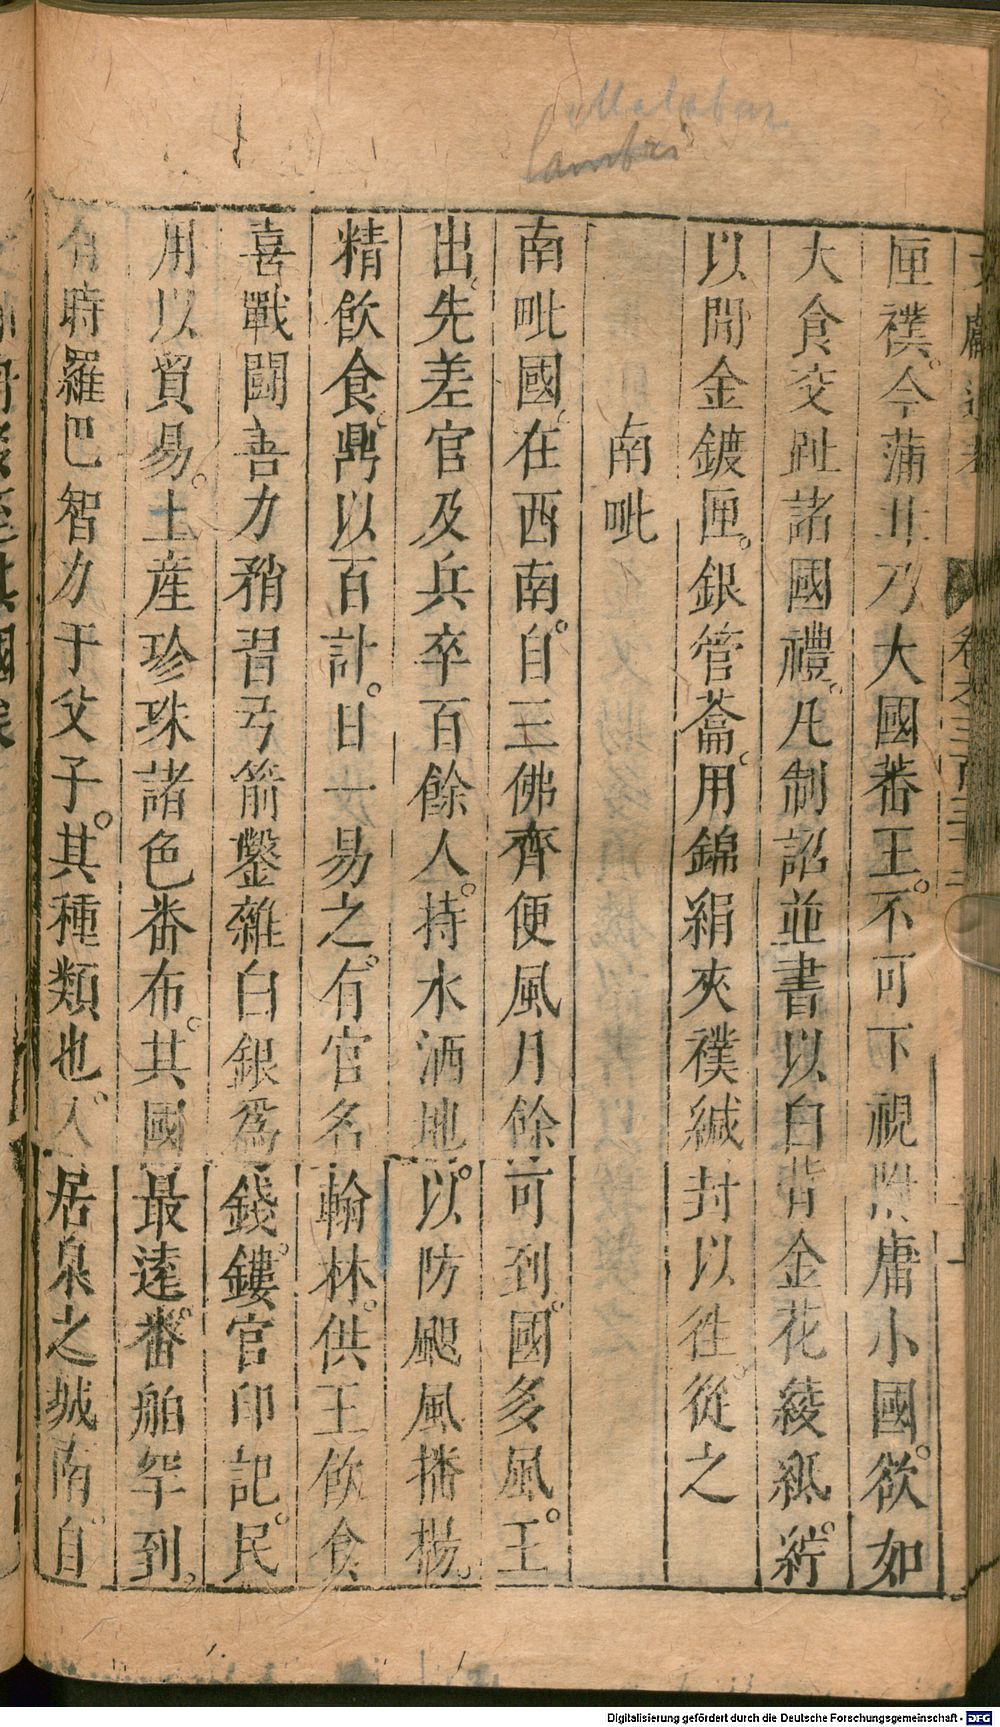 Malabar
Lambri
文獻通考 卷之三百三十二
匣襆。今蒲甘乃大國蕃王。不可下視附庸小國。欲如
大食交趾諸國禮。凡制詔並書以白背金花綾紙。綻
以間金鍍匣。銀管籥。用錦絹夾襆緘封以往。從之
南毗
南毗國。在西南。自三佛齊便風月餘可到。國多風。王
出。先差官及兵卒百餘人。持水洒地。以防颶風播揚。
精飲食。鼎以百計。日一易之。有官名翰林。供王飲食
喜戰鬪善力矟習弓箭鑿雜白銀爲錢。鏤官印記。民
用以貿易。土産珍珠諸色番布。其國最逺。番舶罕到。
有時羅巴智力于父子。其種類也。人居泉之城南。自
Digitalisierung gefördert durch die Deutsche Forschungsgemeinschaft - DFG